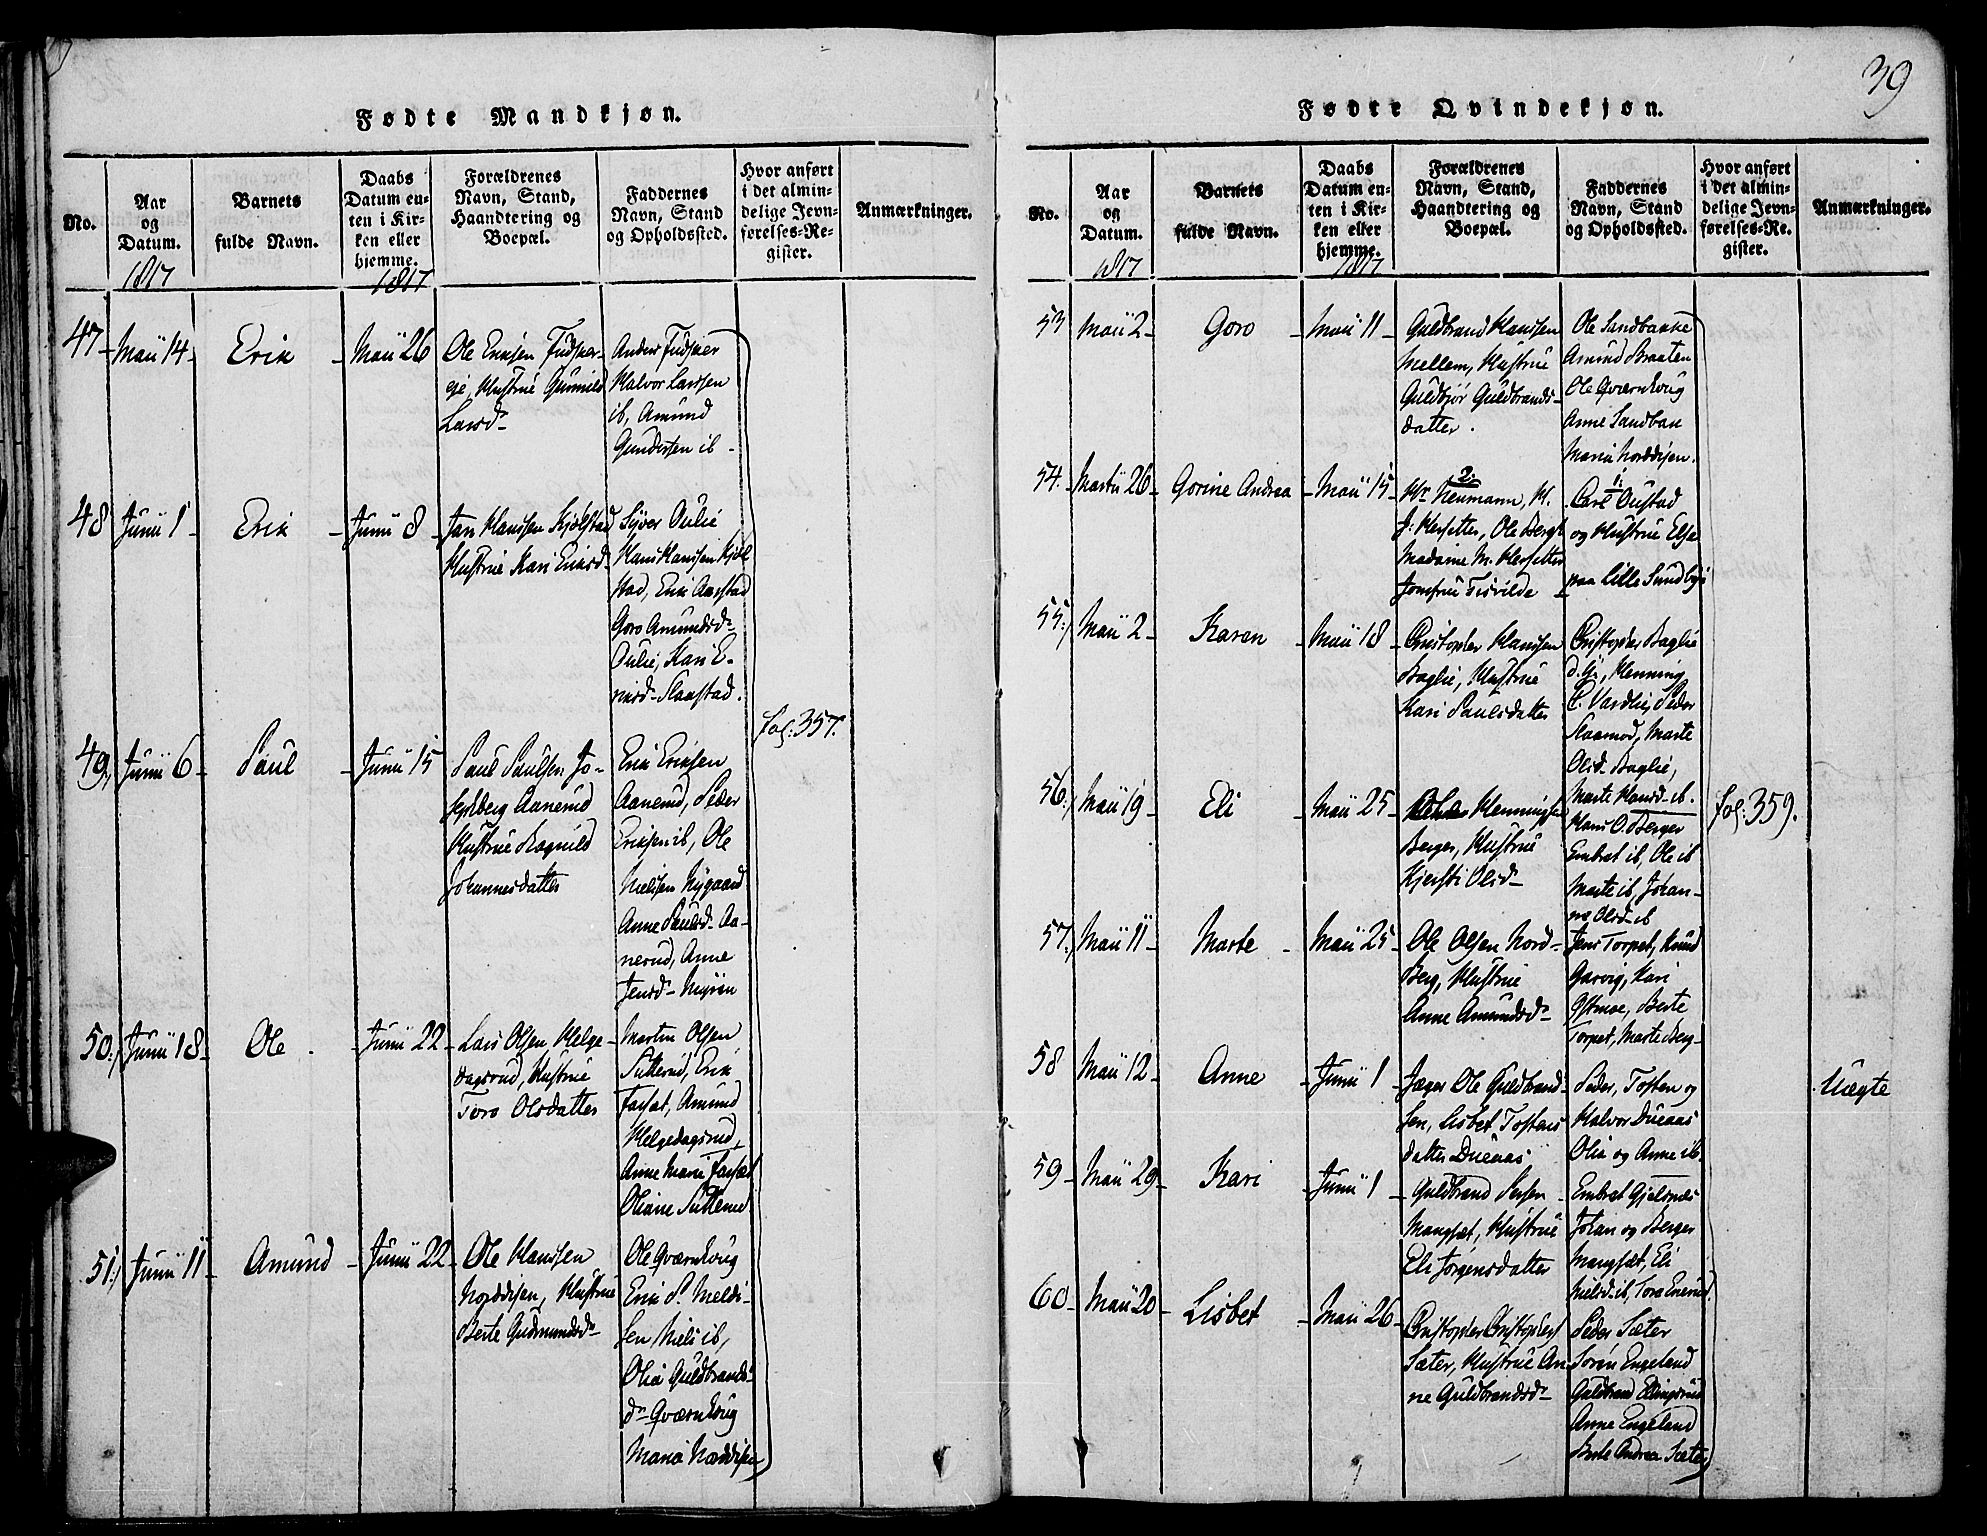 39
Fødte Mandkjøn.
No.
Aar
og
Datum.
1817
Barnets
fulde Navn.
Daabs
Datum en-
ten i Kir-
ken eller
hjemme.
1817
Forældrenes
Navn, Stand,
Haandtering og
Boepæl.
Faddernes
Navn, Stand
og Opholdssted.
Hvor anført
i det almin-
delige Jevn-
førelses-Re-
gister.
Anmærkninger.
47
Maii 14
Erik
Maii 26
Ole Eriksen Fudsker-
eje, Hustrue Gunnild
Larsd
Anders Fudsker
Halvor Larssen
ib, Amund
Gundersen ib
48
Junii 1
Erik
Junii 8
Jan Hanssen Kjølstad
Hustrue Kari Eriksd
Syver Oulie
Hans Hanssen Kjøl
stad, Erik
Goro Amundsd
Oulie, Kari E-
riksd Slaastad.
49
Junii 6
Paul
Junii 15
Paul Paulsen Jo-
Aanerud
Hustrue Ragnild
Johannesdatter
Erik Eriksen
Aanerud, Peder
Eriksen ib, Ole
Nielsen Nygaard
Anne Paulsd Aa-
nerud, Anne
Jensd Myren
fol: 357.
50
Junii 18
Ole
Junii 22
Lars Olsen Helge-
dagsrud, Hustrue
Toro Olsdatter
Martin Olsen
Sutterud, Erik
Farsæt, Amund
Helgedagsrud,
Anne Marie Farsæt
Oliane Sutterud
51
Junii 11
Amund
Junii 22
Ole Hanssen
Norddisen, Hustrue
Berte Gudmundsd
Ole Qværnhoug
Erik P. Meldi-
sen Niels ib,
Olia Guldbrands-
d Qværnhoug
Maria Norddisen
Fødte Qvindekjøn.
No.
Aar
og
Datum.
1817
Barnets
fulde Navn.
Daabs
Datum en-
ten i Kir-
ken eller
hjemme.
1817
Forældrenes
Navn, Stand,
Haandtering og
Boepæl.
Faddernes
Navn, Stand
og Opholdssted.
Hvor anført
i det almin-
delige Jevn-
førelses-Re-
gister.
Anmærkninger.
53
Maii 2
Goro
Maii 11
Guldbrand Hanssen
Mellem, Hustrue
Guldbjør Guldbrands-
datter.
Ole Sandbakke
Amund Braaten
Ole Qværnhoug
Anne Sandbak
Maria Norddisen.
54
Martii 26
Gorine Andrea
Maii 15
2.
Hr Neumann, H.
J: Hersetter, Ole Bergh
Madame M. Hersetter
Jomfru Tisvilde
1.
Carl Oustad
og Hustrue Else
paa Lille Sundbye
55
Maii 2
Karen
Maii 18
Christopher Hanssen
Baglie, Hustrue
Kari Paulsdatter
Christopher Baglie
Henning
P. Vardlie, Peder
Slaamod, Marte
Olsd Baglie,
Marte Hansd ib.
56
Maii 19
Eli
Maii 25
Henningsen
Berger, Hustrue
Kjersti Olsd
Hans O. Berger
Embret ib, Ole ib
Marte ib, Johan-
ne Olsd ib
fol: 359.
57
Maii 11
Marte
Maii 25
Ole Olsen Nord-
Berg, Hustrue
Anne Amundsd
Jens Torpet, Knud
Garvig, Kari
Ostmoe, Berte
Torpet, Marte Berg
58
Maii 12
Anne
Junii 1
Jæger Ole Guldbrand-
sen, Lisbet Tostens
datter Dueaas
Peder, Tosten og
Halvor Dueaas
Olia og Anne ib.
Uægte
59
Maii 29
Kari
Junii 1
Guldbrand Persen
Mangset, Hustrue
Eli Jørgensdatter
Embret Gjelsnes
Johan og Berger
Mangset, Eli
Nielsd ib, Tora Enerud.
60
Maii 20
Lisbet
Maii 26
Christopher Christophers
Sæter, Hustrue An-
ne Guldbrandsd
Peder Sæter
Søren Engeland
Guldbrand Ellingsrud
Anne Engeland
Berte Andrea Sæter